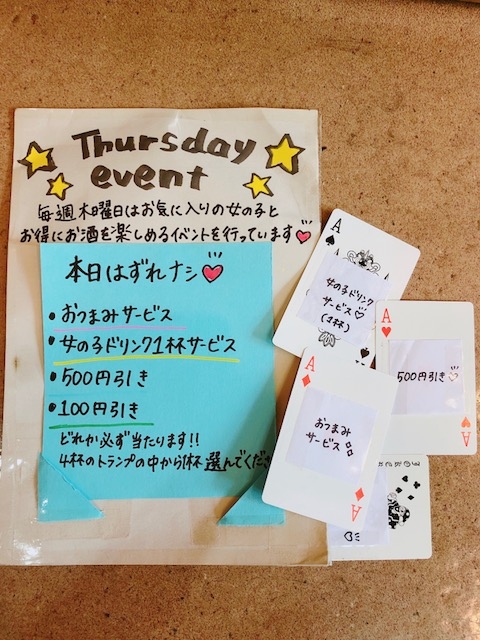 Thursday
event
毎週木曜日はお気に入りの女の子と
お得にお酒を楽しめるイベントを行っています
本日はずれナシ
• おつまみサービス
• 女の子ドリンク1杯サービス
• 500円引き
• 100円引き
どれか必ず当たります!!
4杯のトランプの中から1杯選んでくださ
A
女の子ドリンク
サービス♡
(1杯)
A
500円引き♡
A
A
おつまみ
サービス
A